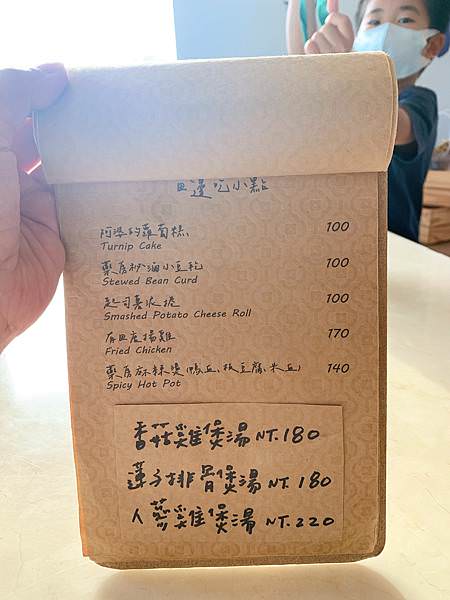 田邊吃小點
阿婆的蘿蔔糕 100
Turnip Cake
藥房秘滷小豆乾 100
Stewed Bean Curd
起司薯泥捲 100
Smashed Potato Cheese Roll
在田底揚雞 170
Fried Chicken
藥房麻辣燙(鴨血、板豆腐、米血) 140
Spicy Hot Pot
香菇雞煲湯 NT.180
蓮子排骨煲湯 NT.180
人蔘雞煲湯 NT.220